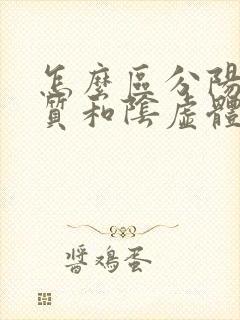 怎麼區分陽
質和陰虛體
醬鴻蛋